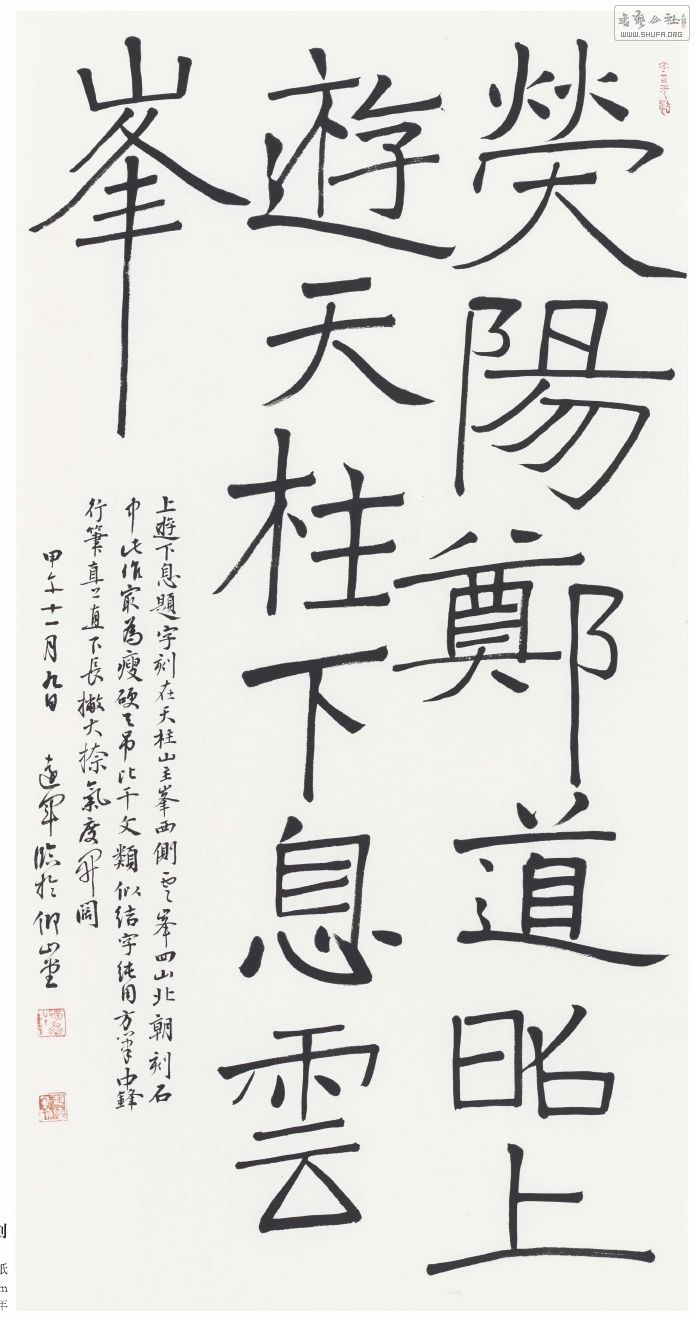 熒陽鄭道昭上
遊天柱下息雲
峯
上遊下息題字刻在天柱山主峯西側雲峯四山北朝刻石
中此作最為瘦硬与吊比干文類似結字純用方筆中鋒
行筆直上直下長撇大捺氣度開闊
甲午十一月九日 遠軍臨於仰山堂
WWW.SHUFA.ORG